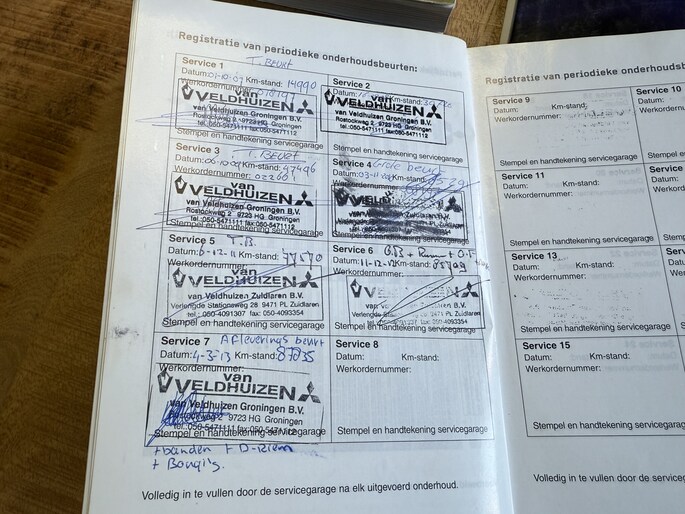 Registratie van periodieke onderhoudsbeurten:
Service 1 T. Beurt
Datum: 01-10-07 Km-stand: 14990
Werkordernummer:
van
VELDHUIZEN
van Veldhuizen Groningen B.V.
Rostockweg 9723 HG Groningen
tel.:050-5471111 fax:050-5471112
Stempel en handtekening servicegarage
Service 2
Datum: Km-stand:
van
VELDHUIZEN
van Veldhuizen Groningen B.V.
Rostockweg 2 9723 HG Groningen
tel.:050-5471111 fax:050-5471112
Stempel en handtekening servicegarage
Service 3 T. Beurt
Datum: 06-10-09 Km-stand: 47496
Werkordernummer: 02260
van
VELDHUIZEN
van Veldhuizen Groningen B.V.
Rostockweg 2 9723 HG Groningen
tel.:050-5471111 fax:050-5471112
Stempel en handtekening servicegarage
Service 4 Grote beurt
Datum: 03-11 Km-stand:
Werkordernummer:
VELDHUIZEN
Stempel en handtekening servicegarage
Service 5 T.B.
Datum: -12-11 Km-stand: 77570
Werkordernummer:
van
VELDHUIZEN
van Veldhuizen Zuidlaren B.V.
Verlengde Stationsweg 28 9471 PL Zuidlaren
tel.: 050-4091307 fax: 050-4093354
Stempel en handtekening servicegarage
Service 6 G.B + + O.
Datum: 11-12-12 Km-stand: 85709
Werkordernummer:
VELDHUIZEN
Zuidlaren B.V.
Verlengde 9471 PL Zuidlaren
fax: 050-4093354
Stempel en handtekening servicegarage
Service 7 Afleverings beurt
Datum: 4-3-13 Km-stand: 87835
Werkordernummer:
van
VELDHUIZEN
van Veldhuizen Groningen B.V.
9723 HG Groningen
tel.:050-5471111 fax:050-5471112
Stempel en handtekening servicegarage
+banden + D-riem
+ Bougi's.
Service 8
Datum: Km-stand:
Werkordernummer:
Stempel en handtekening servicegarage
Volledig in te vullen door de servicegarage na elk uitgevoerd onderhoud.
Registratie van periodieke onderhoudsb
Service 9
Datum: Km-stand:
Werkordernummer:
Stempel en handtekening servicegarage
Service 10
Datum:
Werkorder
Stempel
Service 11
Datum: Km-stand:
Werkordernummer:
Stempel en handtekening servicegarage
Service
Datum:
Werko
Stempe
Service 13
Datum: Km-stand:
Werkordernummer:
Stempel en handtekening servicegarage
Service 15
Datum: Km-stand:
Werkordernummer:
Stempel en handtekening servicegarage
Volledig in te vullen door de servicegara